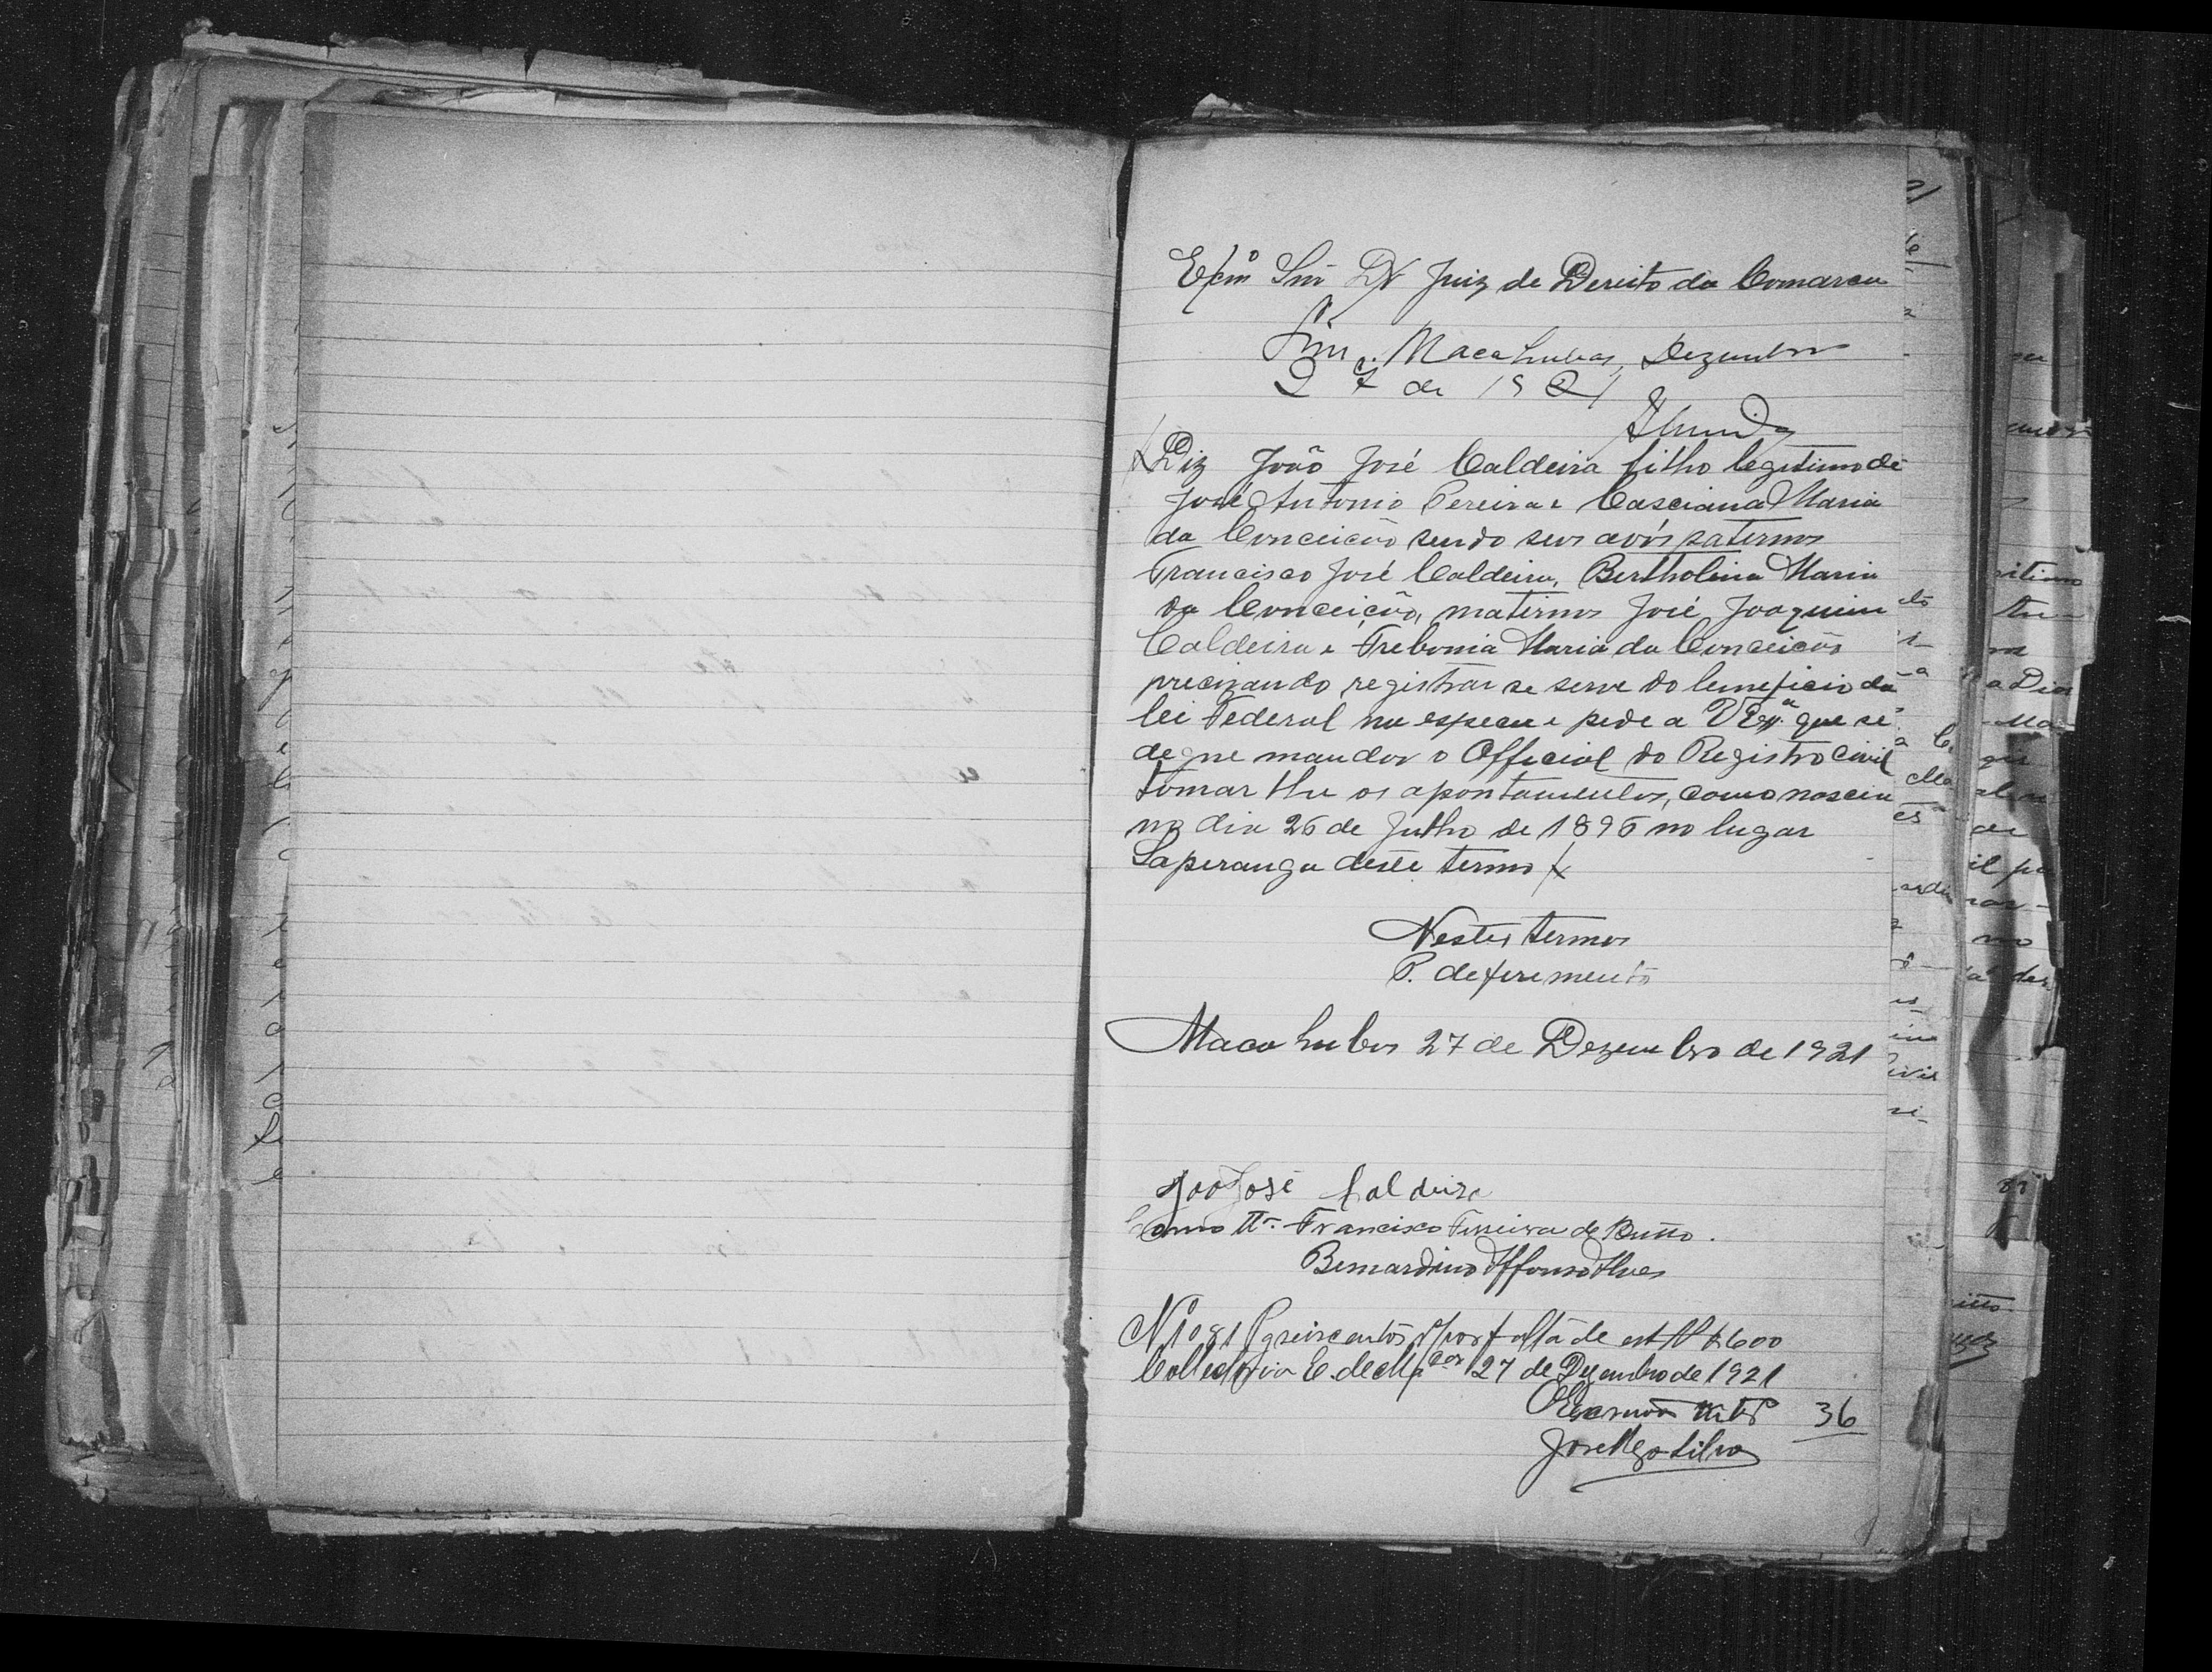 Exmº Snr Dr Juiz de Dereito da Comarca
Sim. Macahubas, Dezembro
27 de 1921
Diz João José Caldeira filho legitimo de
José Antonio Pereira e Casciana Maria
da Conceição sendo seus avós paternos
Francisco José Caldeira, Bertholina Maria
da Conceição, maternos José Joaquim
Caldeira e Trebonia Maria da Conceição
precizando registrar se serve do beneficio da
lei Federal na especie e pede a V Exª. que se
degne mandar o Official do Registro Civil
tomar lhe os apontamentos, como nasceu
no dia 26 de Julho de 1896 no lugar
Saperanga deste termo
Nestes termos
P. deferimento
Macahubas 27 de Dezembro de 1921
João José Caldeira
Como Tª. Francisco Ferreira de Britto.
Bernardino Affonso Alves
Nº 81 Pg reiscentos por falta de est 600
Collectoria E. de 27 de Dezembro de 1921
36
José Silva